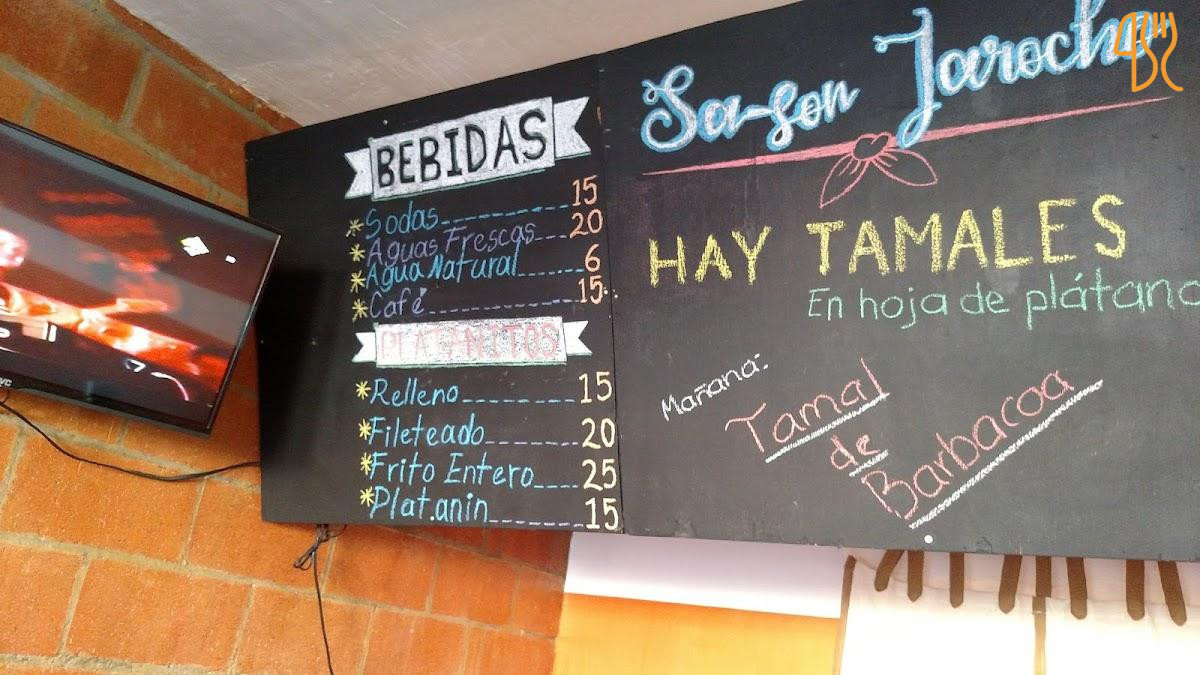 BEBIDAS
*Sodas 15
*Aguas Frescas 20
*Agua Natural 6
*Café 15
PLATANITOS
*Relleno 15
*Fileteado 20
*Frito Entero 25
*Plat.anin 15
Sa-son Jarocho
HAY TAMALES
En hoja de plátano
Mañana:
Tamal
de
Barbacoa